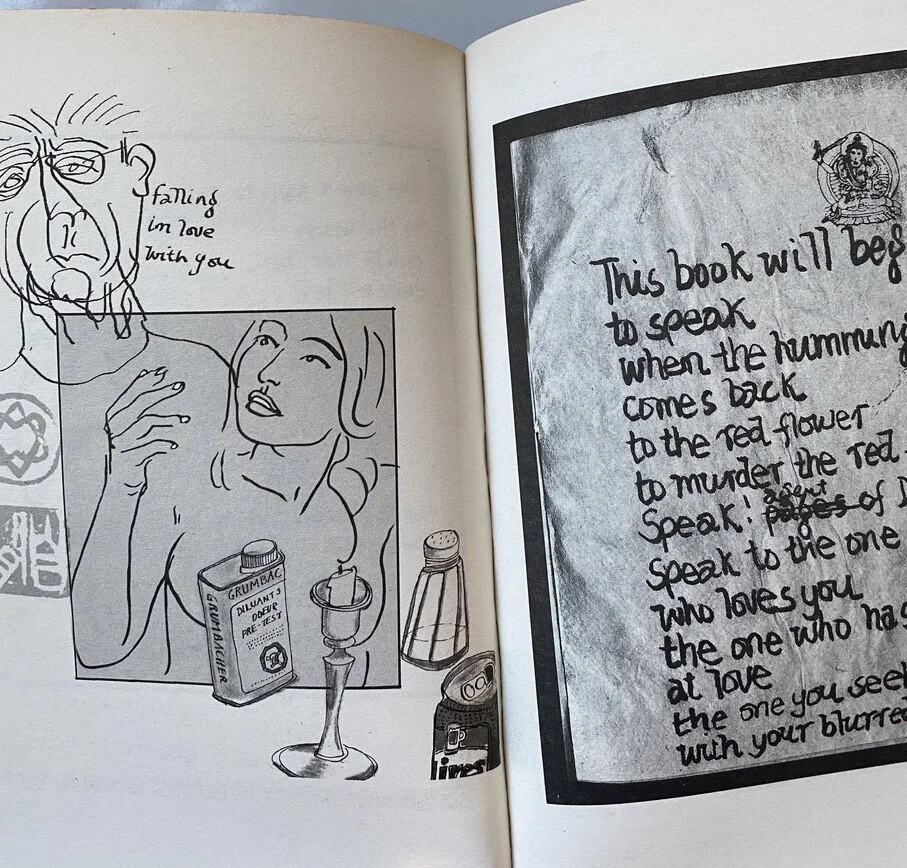 falling
in love
with you
GRUMBAC
DILUANTS
ODEUR
PRE-TEST
GRUMBACHER
This book will beg
to speak
when the humming
comes back
to the red flower
to murder the red
Speak! agent pages of D
Speak to the one
who loves you
the one who has
at love
the one you seek
with your blurred